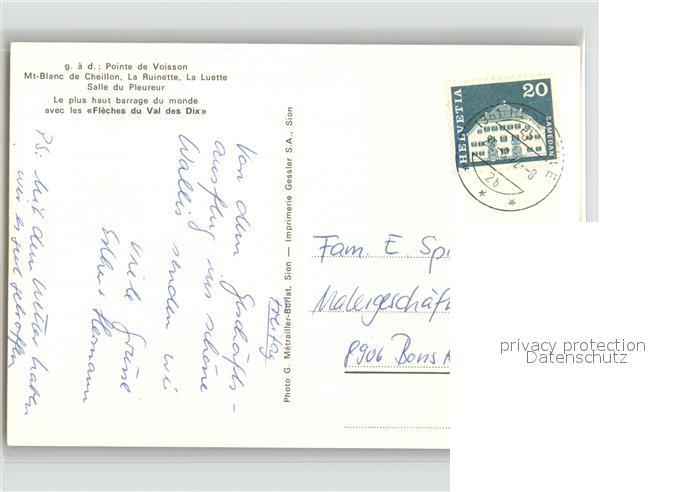 g. à d.: Pointe de Voisson
Mt-Blanc de Cheillon, La Ruinette, La Luette
Salle du Pleureur
Le plus haut barrage du monde
avec les «Flèches du Val des Dix»
Freitag
Von dem Geschäfts-
ausflug ins schöne
Wallis senden wir
viele Grüsse
Esther Hermann
PS: Mit dem Wetter haben
wir es gut getroffen
Photo G. Métrailler-Borlat, Sion — Imprimerie Gessler S.A., Sion
HELVETIA
20
SAMEDAN
Fam. E. Spi
Malergeschäf
8906 Bons
privacy protection
Datenschutz